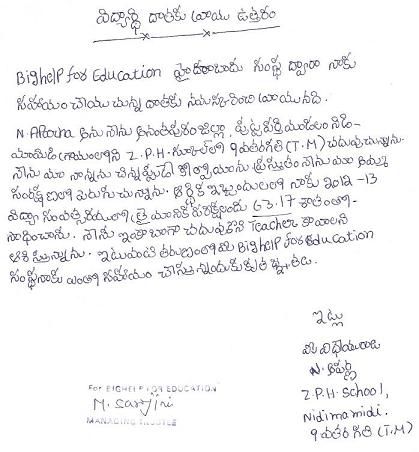 విద్యార్థి దాతకు వ్రాయు ఉత్తరం
BigHelp for Education హైదరాబాదు సంస్థ ద్వారా నాకు
సహాయం చేయుచున్న దాతకు నమస్కరించి వ్రాయునది.
N. Aparna అను నేను అనంతపురం జిల్లా, పుట్టపర్తి మండలం నిడి-
మామిడి గ్రామంలోని Z.P.H. స్కూల్ లో 9వతరగతి (T.M) చదువుచున్నాను.
నేను మా నాన్నను చిన్నప్పుడే కోల్పోయాను ప్రస్తుతం నేను మా అమ్మ
సంరక్షణలో పెరుగుచున్నాను. ఆర్థిక ఇబ్బందులలో నాకు 2012-13
విద్యా సంవత్సరములో త్రైమాసిక పరీక్షలందు 63.17 శాతంతో
సాధించాను. నేను ఇంకా బాగా చదువుకొని Teacher కావాలని
ఆశిస్తున్నాను. ఇటువంటి తరుణంలో BigHelp for Education
సంస్థ నాకు ఎంతో సహాయం చేస్తున్నందుకు కృతజ్ఞతలు.
ఇట్లు
మీ విధేయురాలు
N. అపర్ణ
Z.P.H. School,
Nidimamidi.
9వతరగతి (T.M)
For BIGHELP FOR EDUCATION
M. Sarojini
MANAGING TRUSTEE